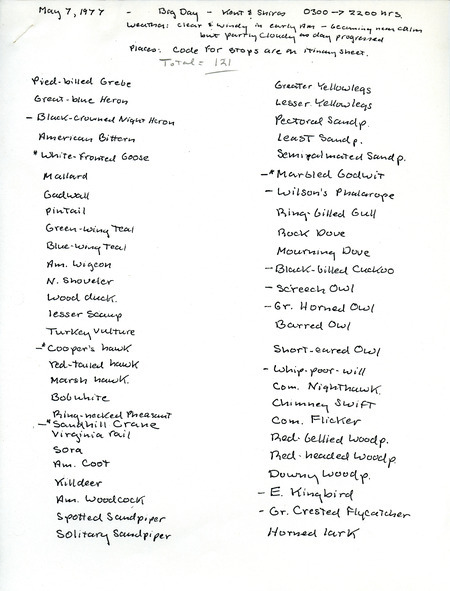 May 7, 1977 - Big Day - Kent & Shiras 0300 → 2200 hrs.
Weather: clear & windy in early AM - becoming near calm
but partly cloudy as day progressed
Places: Code for stops are on itinary sheet.
Total = 121
Pied-billed Grebe
Great-blue Heron
- Black-crowned Night Heron
American Bittern
* White-Fronted Goose
Mallard
Gadwall
Pintail
Green-wing Teal
Blue-wing Teal
Am. Wigeon
N. Shoveler
Wood duck
lesser Scaup
Turkey Vulture
-* Cooper's hawk
red-tailed hawk
Marsh hawk
Bobwhite
Ring-necked Pheasant
-* Sandhill Crane
Virginia rail
Sora
Am. Coot
Killdeer
Am. Woodcock
Spotted Sandpiper
Solitary Sandpiper
Greater Yellowlegs
Lesser Yellowlegs
Pectoral Sandp.
Least Sandp.
Semipalmated Sandp.
-* Marbled Godwit
- Wilson's Phalarope
Ring-billed Gull
Rock Dove
Mourning Dove
- Black-billed Cuckoo
- Screech Owl
- Gr. Horned Owl
Barred Owl
Short-eared Owl
- Whip-poor-will
Com. Nighthawk
Chimney Swift
Com. Flicker
Red-bellied Woodp.
Red-headed Woodp.
Downy Woodp.
- E. Kingbird
- Gr. Crested Flycatcher
Horned lark